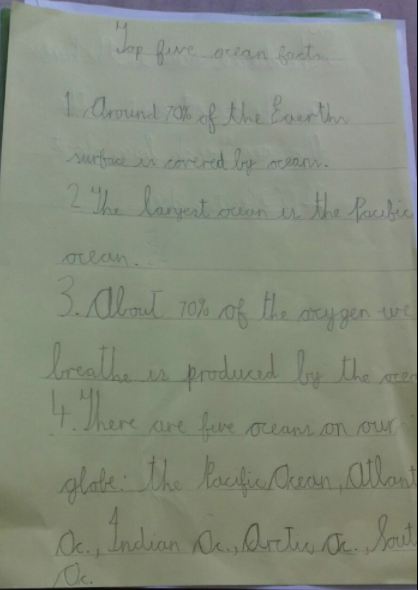 Top five ocean facts
1. Around 70% of the Earths
surface is covered by oceans.
2. The largest ocean is the Pacific
ocean.
3. About 70% of the oxygen we
breathe is produced by the ocea
4. There are five oceans on our
globe: the Pacific Ocean, Atlant
Oc., Indian Oc., Arctic Oc., Sout
Oc.